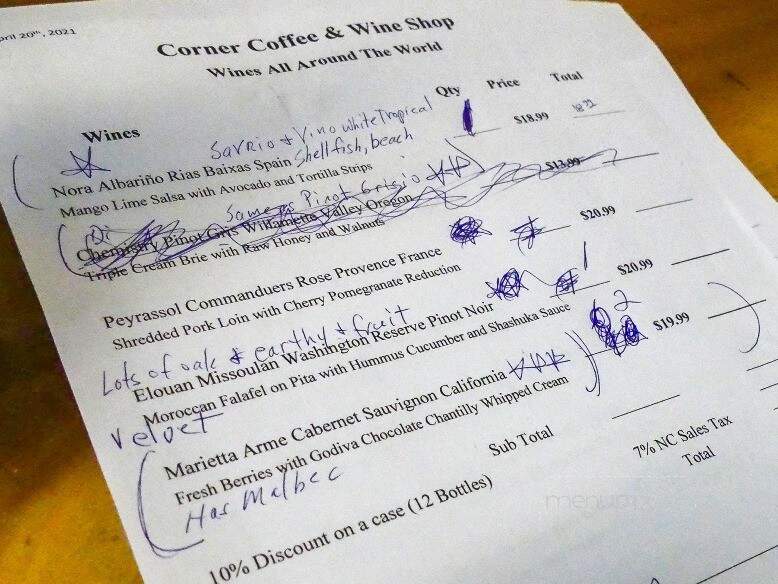 pril 20th, 2021
Corner Coffee & Wine Shop
Wines All Around The World
Wines Qty Price Total
Savrio & Vino white Tropical
Nora Albariño Rias Baixas Spain Shellfish, beach $18.99
Mango Lime Salsa with Avocado and Tortilla Strips
Same as Pinot Grigio
Chemistry Pinot Gris Willamette Valley Oregon $13.99
Triple Cream Brie with Raw Honey and Walnuts
Peyrassol Commanduers Rose Provence France $20.99
Shredded Pork Loin with Cherry Pomegranate Reduction
Lots of oak & earthy & fruit
Elouan Missoulan Washington Reserve Pinot Noir 1 $20.99
Moroccan Falafel on Pita with Hummus Cucumber and Shashuka Sauce
velvet
Marietta Arme Cabernet Sauvignon California 2 $19.99
Fresh Berries with Godiva Chocolate Chantilly Whipped Cream
Has Malbec
Sub Total
7% NC Sales Tax
Total
10% Discount on a case (12 Bottles)